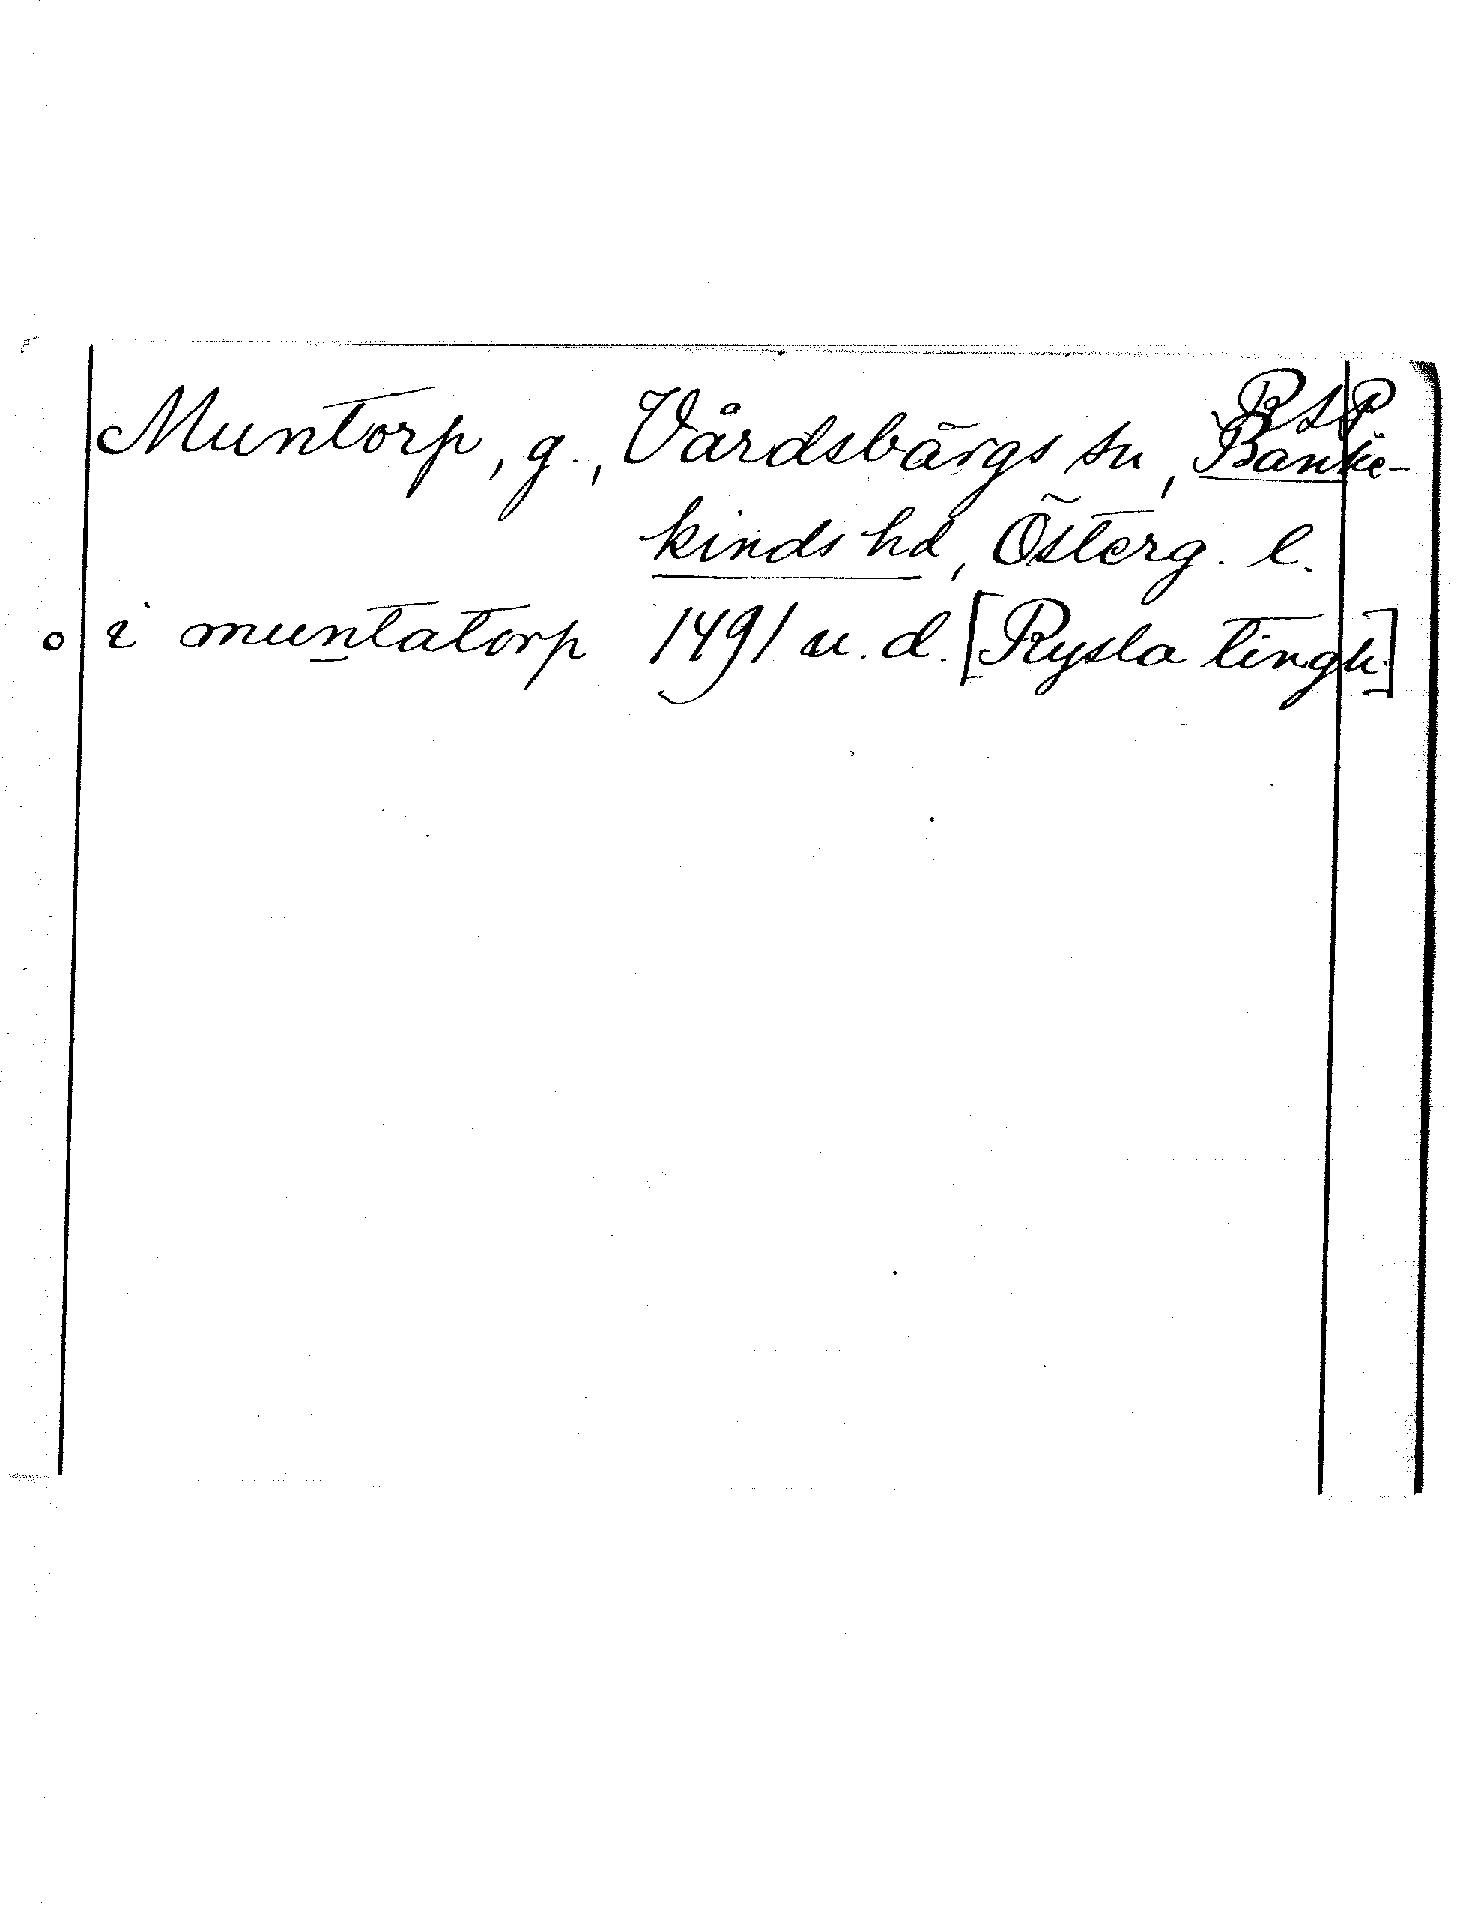 RAP
Muntorp, g., Vårdsbärgs sn, Banke-
kinds hd, Österg. l.
o i muntatorp 1491 u. d. [Rysla tingh.]